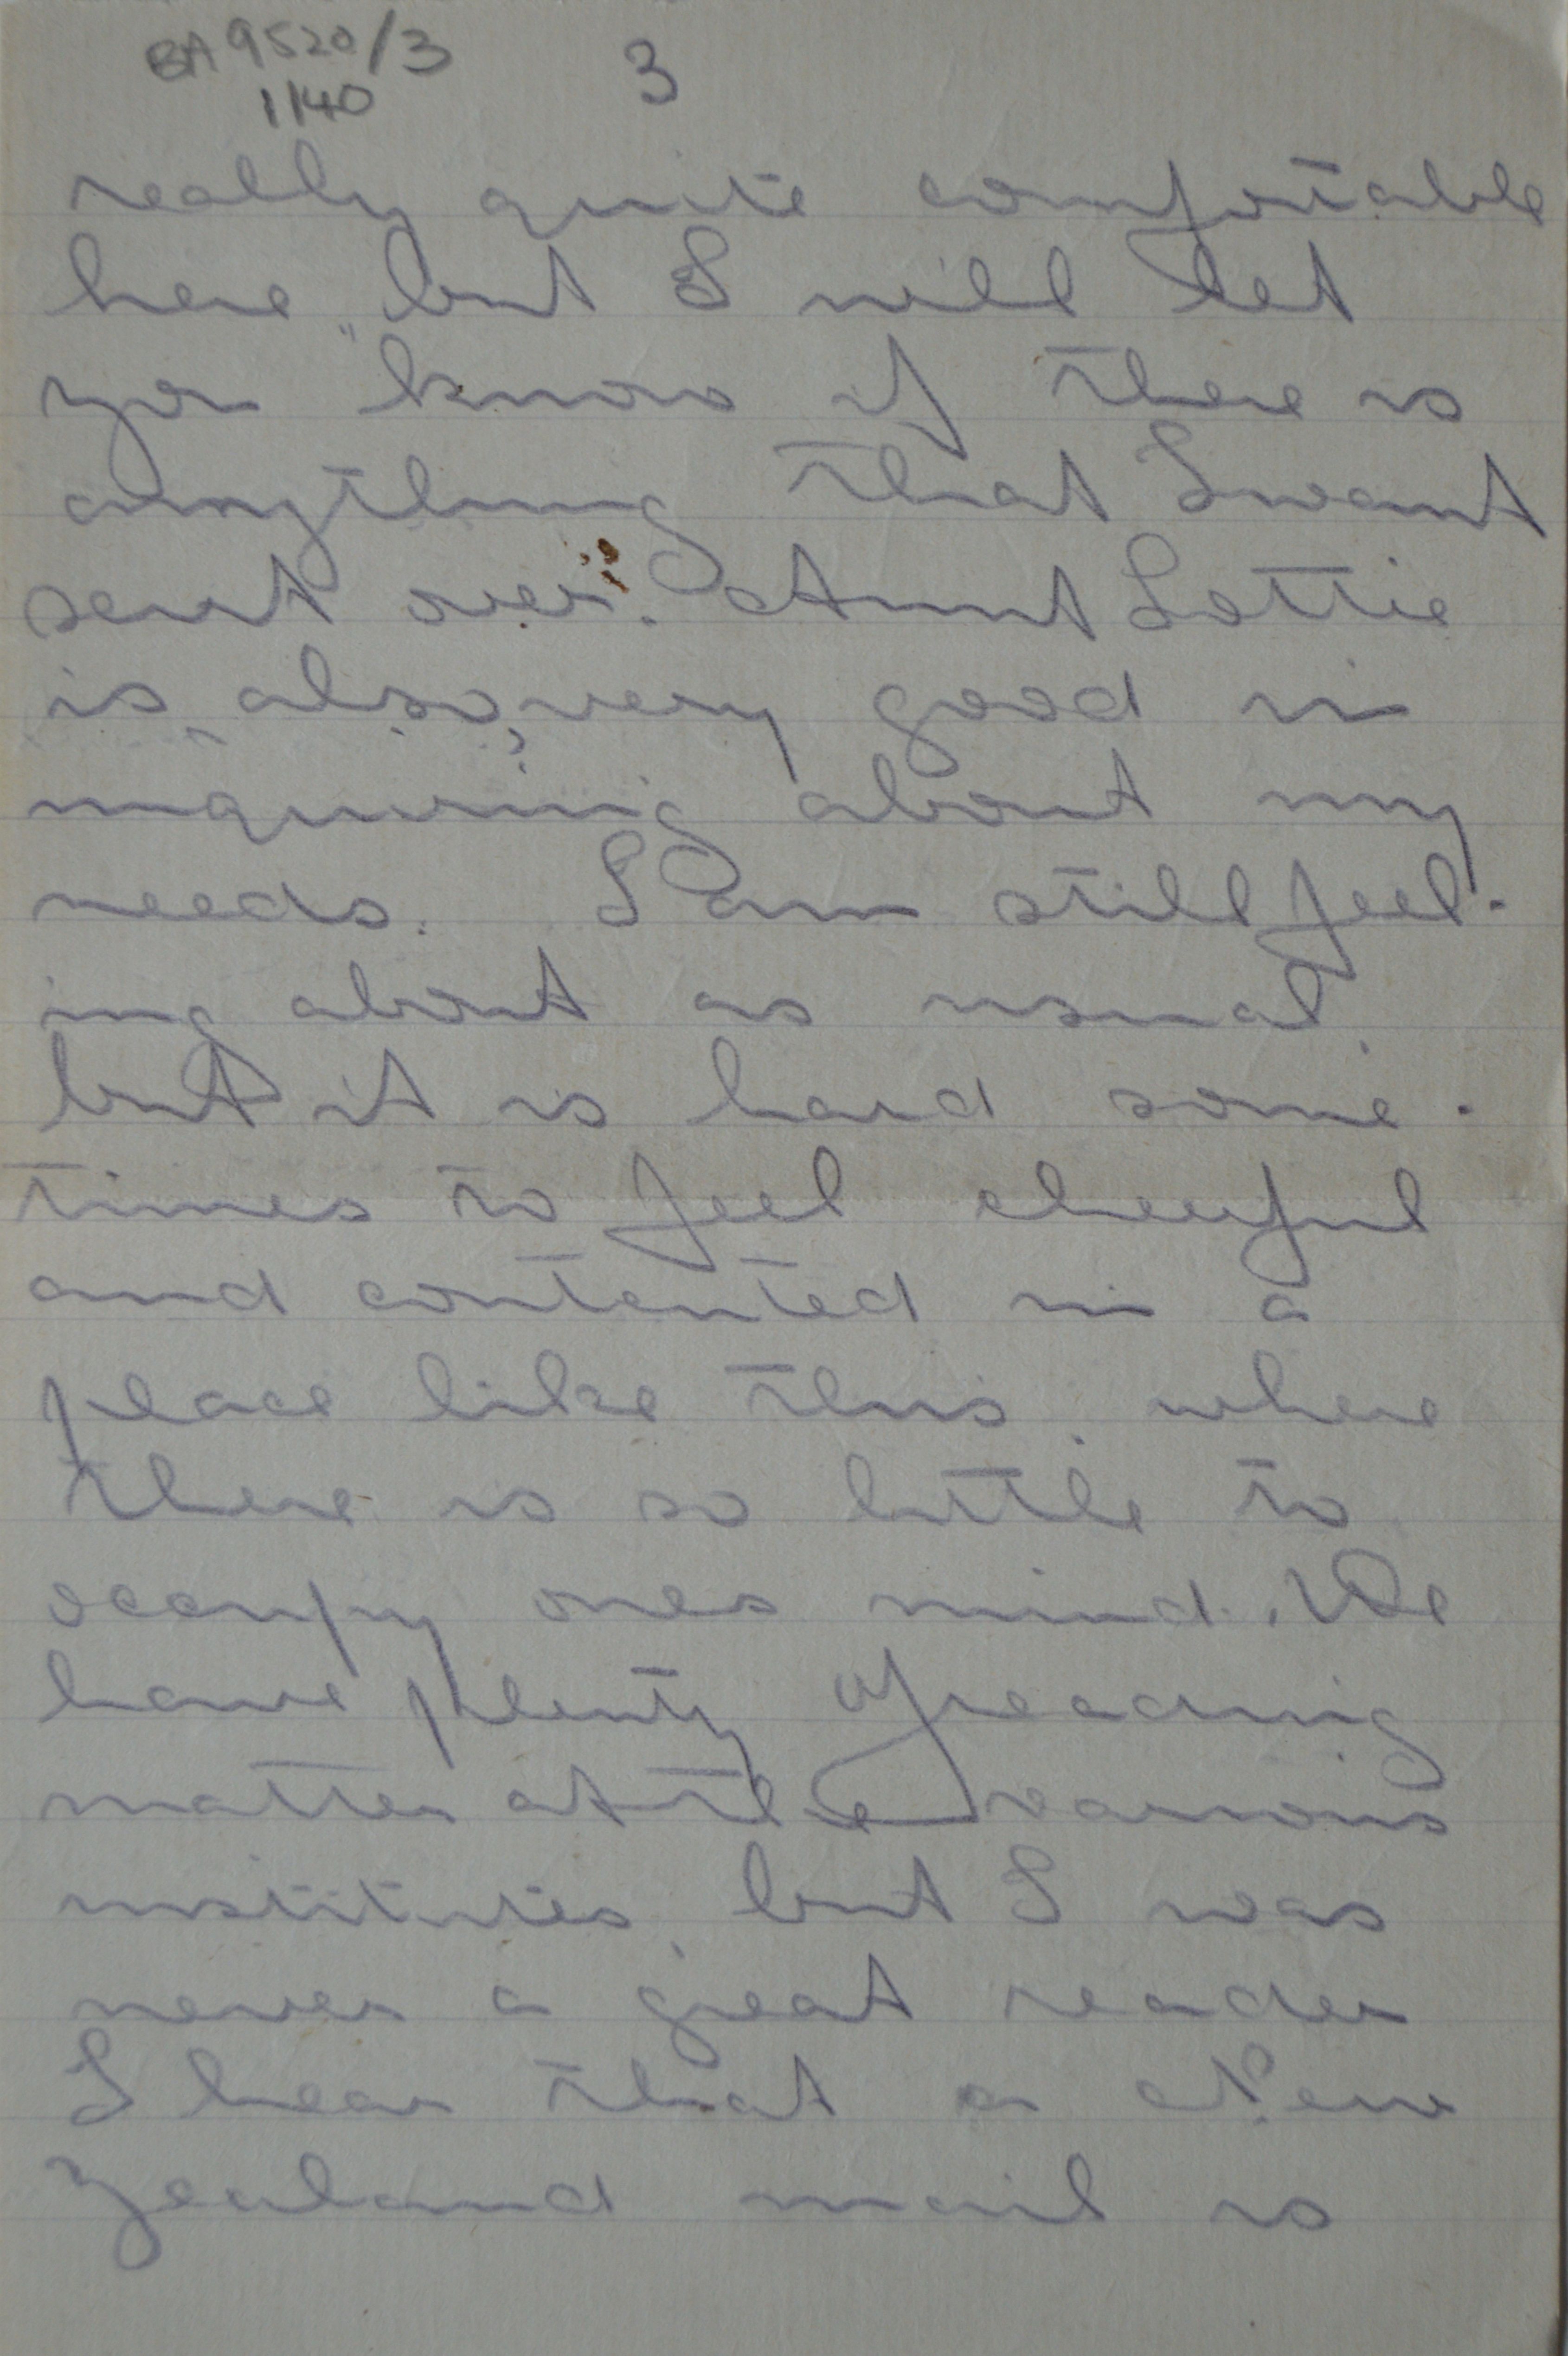 BA 9520/3
1140
3
really quite comfortable
here, but I will let
you know if there is
anything that I want
sent over. Aunt Lottie
is, also, very good in
inquiring about my
needs. I am still feel-
ing about as usual,
but it is hard some-
times to feel cheerful
and contented in a
place like this, where
there is so little to
occupy ones mind. We
have plenty of reading
matter at the various
institutes, but I was
never a great reader
I hear that a New
Zealand mail is